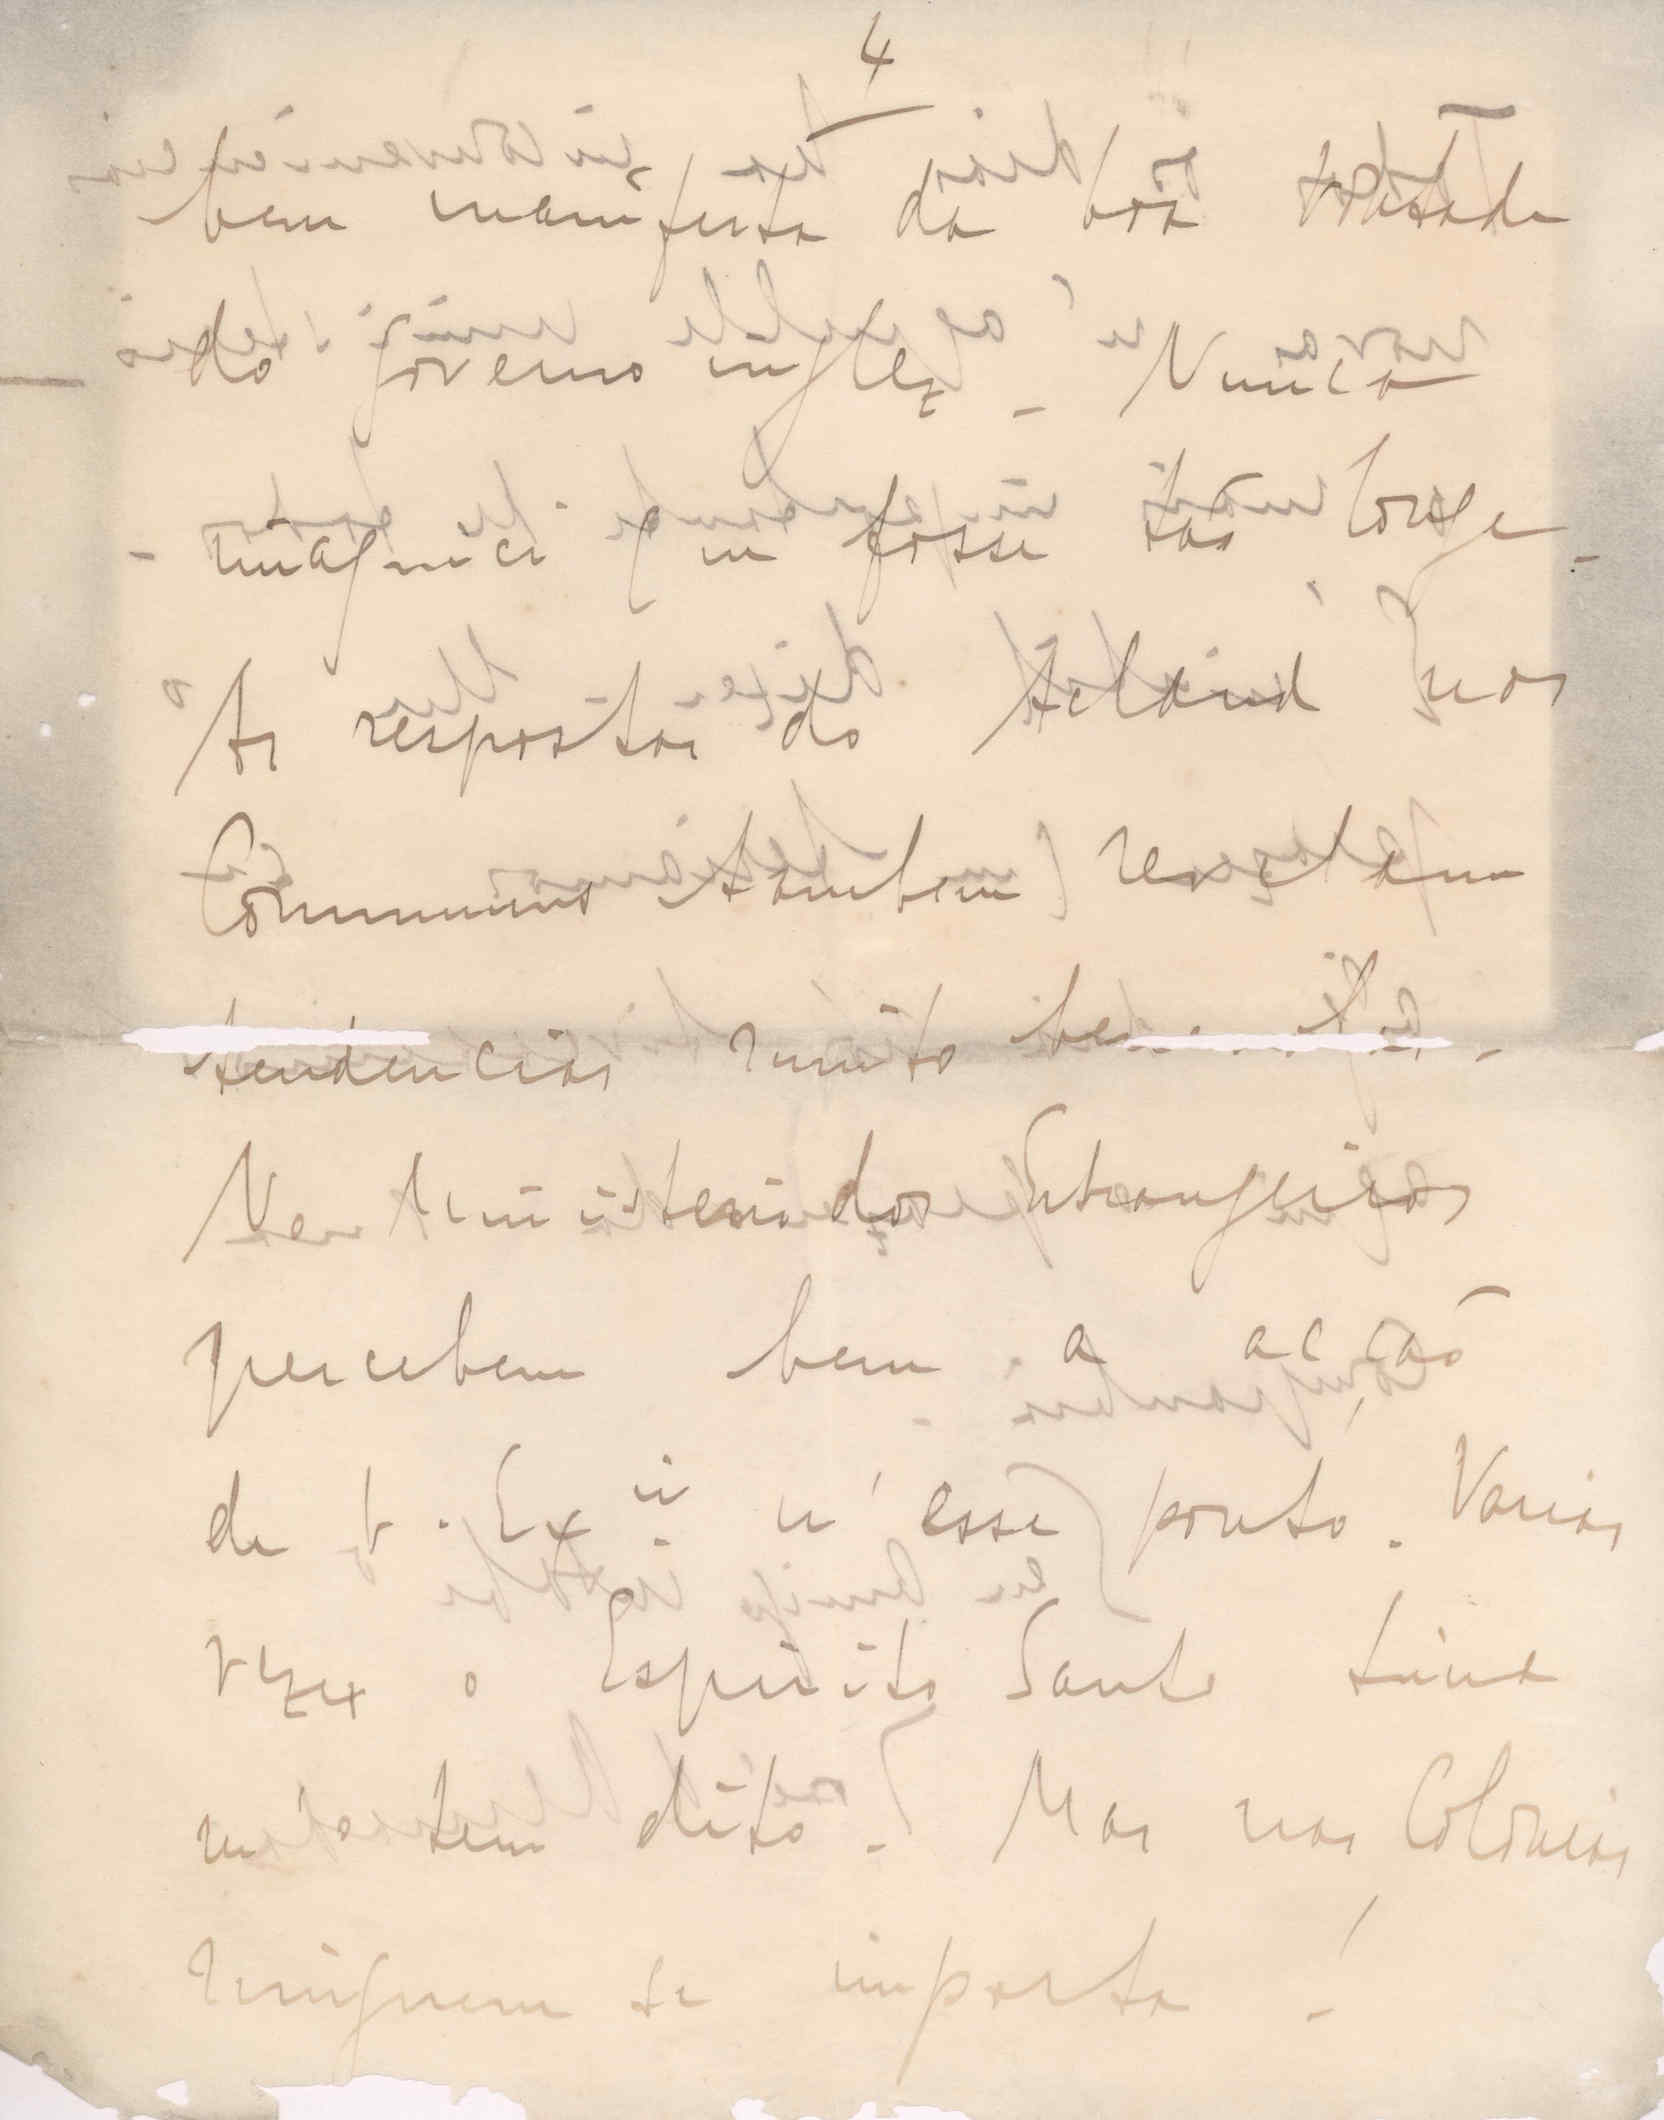 4
bem manifesta da bôa vontade
do governo inglez. Nunca
imaginei que fosse tão longe.
As respostas do Acland nos
Communs tambem revelam
tendencias muito
No Ministerio dos Estrangeiros
percebem bem a acção
de V. Exª n'esse ponto. Varias
vezes o Espirito Santo Lima
m'o tem dito. Mas nas Colonias
ninguem se importa!